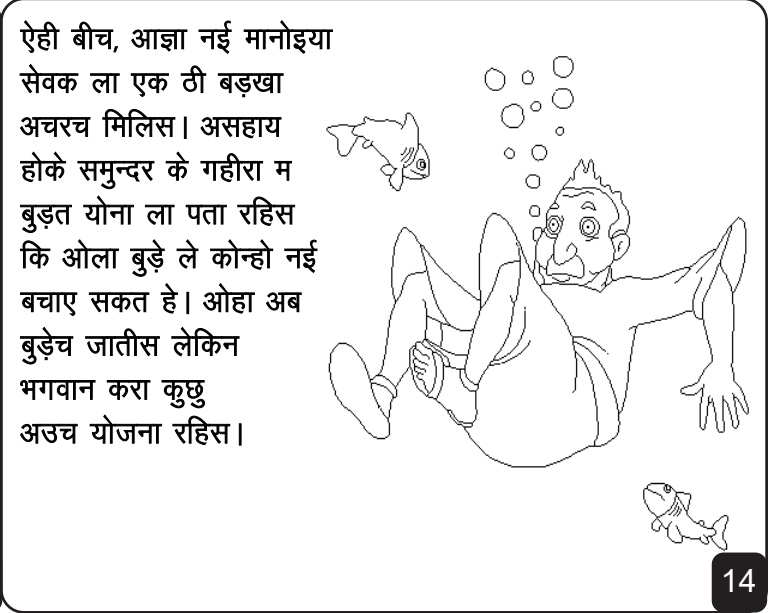 ऐही बीच, आज्ञा नई मानोइया
सेवक ला एक ठी बड़खा
अचरच मिलिस। असहाय
होके समुन्दर के गहीरा म
बुड़त योना ला पता रहिस
कि ओला बुड़े ले कोन्हो नई
बचाए सकत हे। ओहा अब
बुड़ेच जातीस लेकिन
भगवान करा कुछु
अउच योजना रहिस।
14